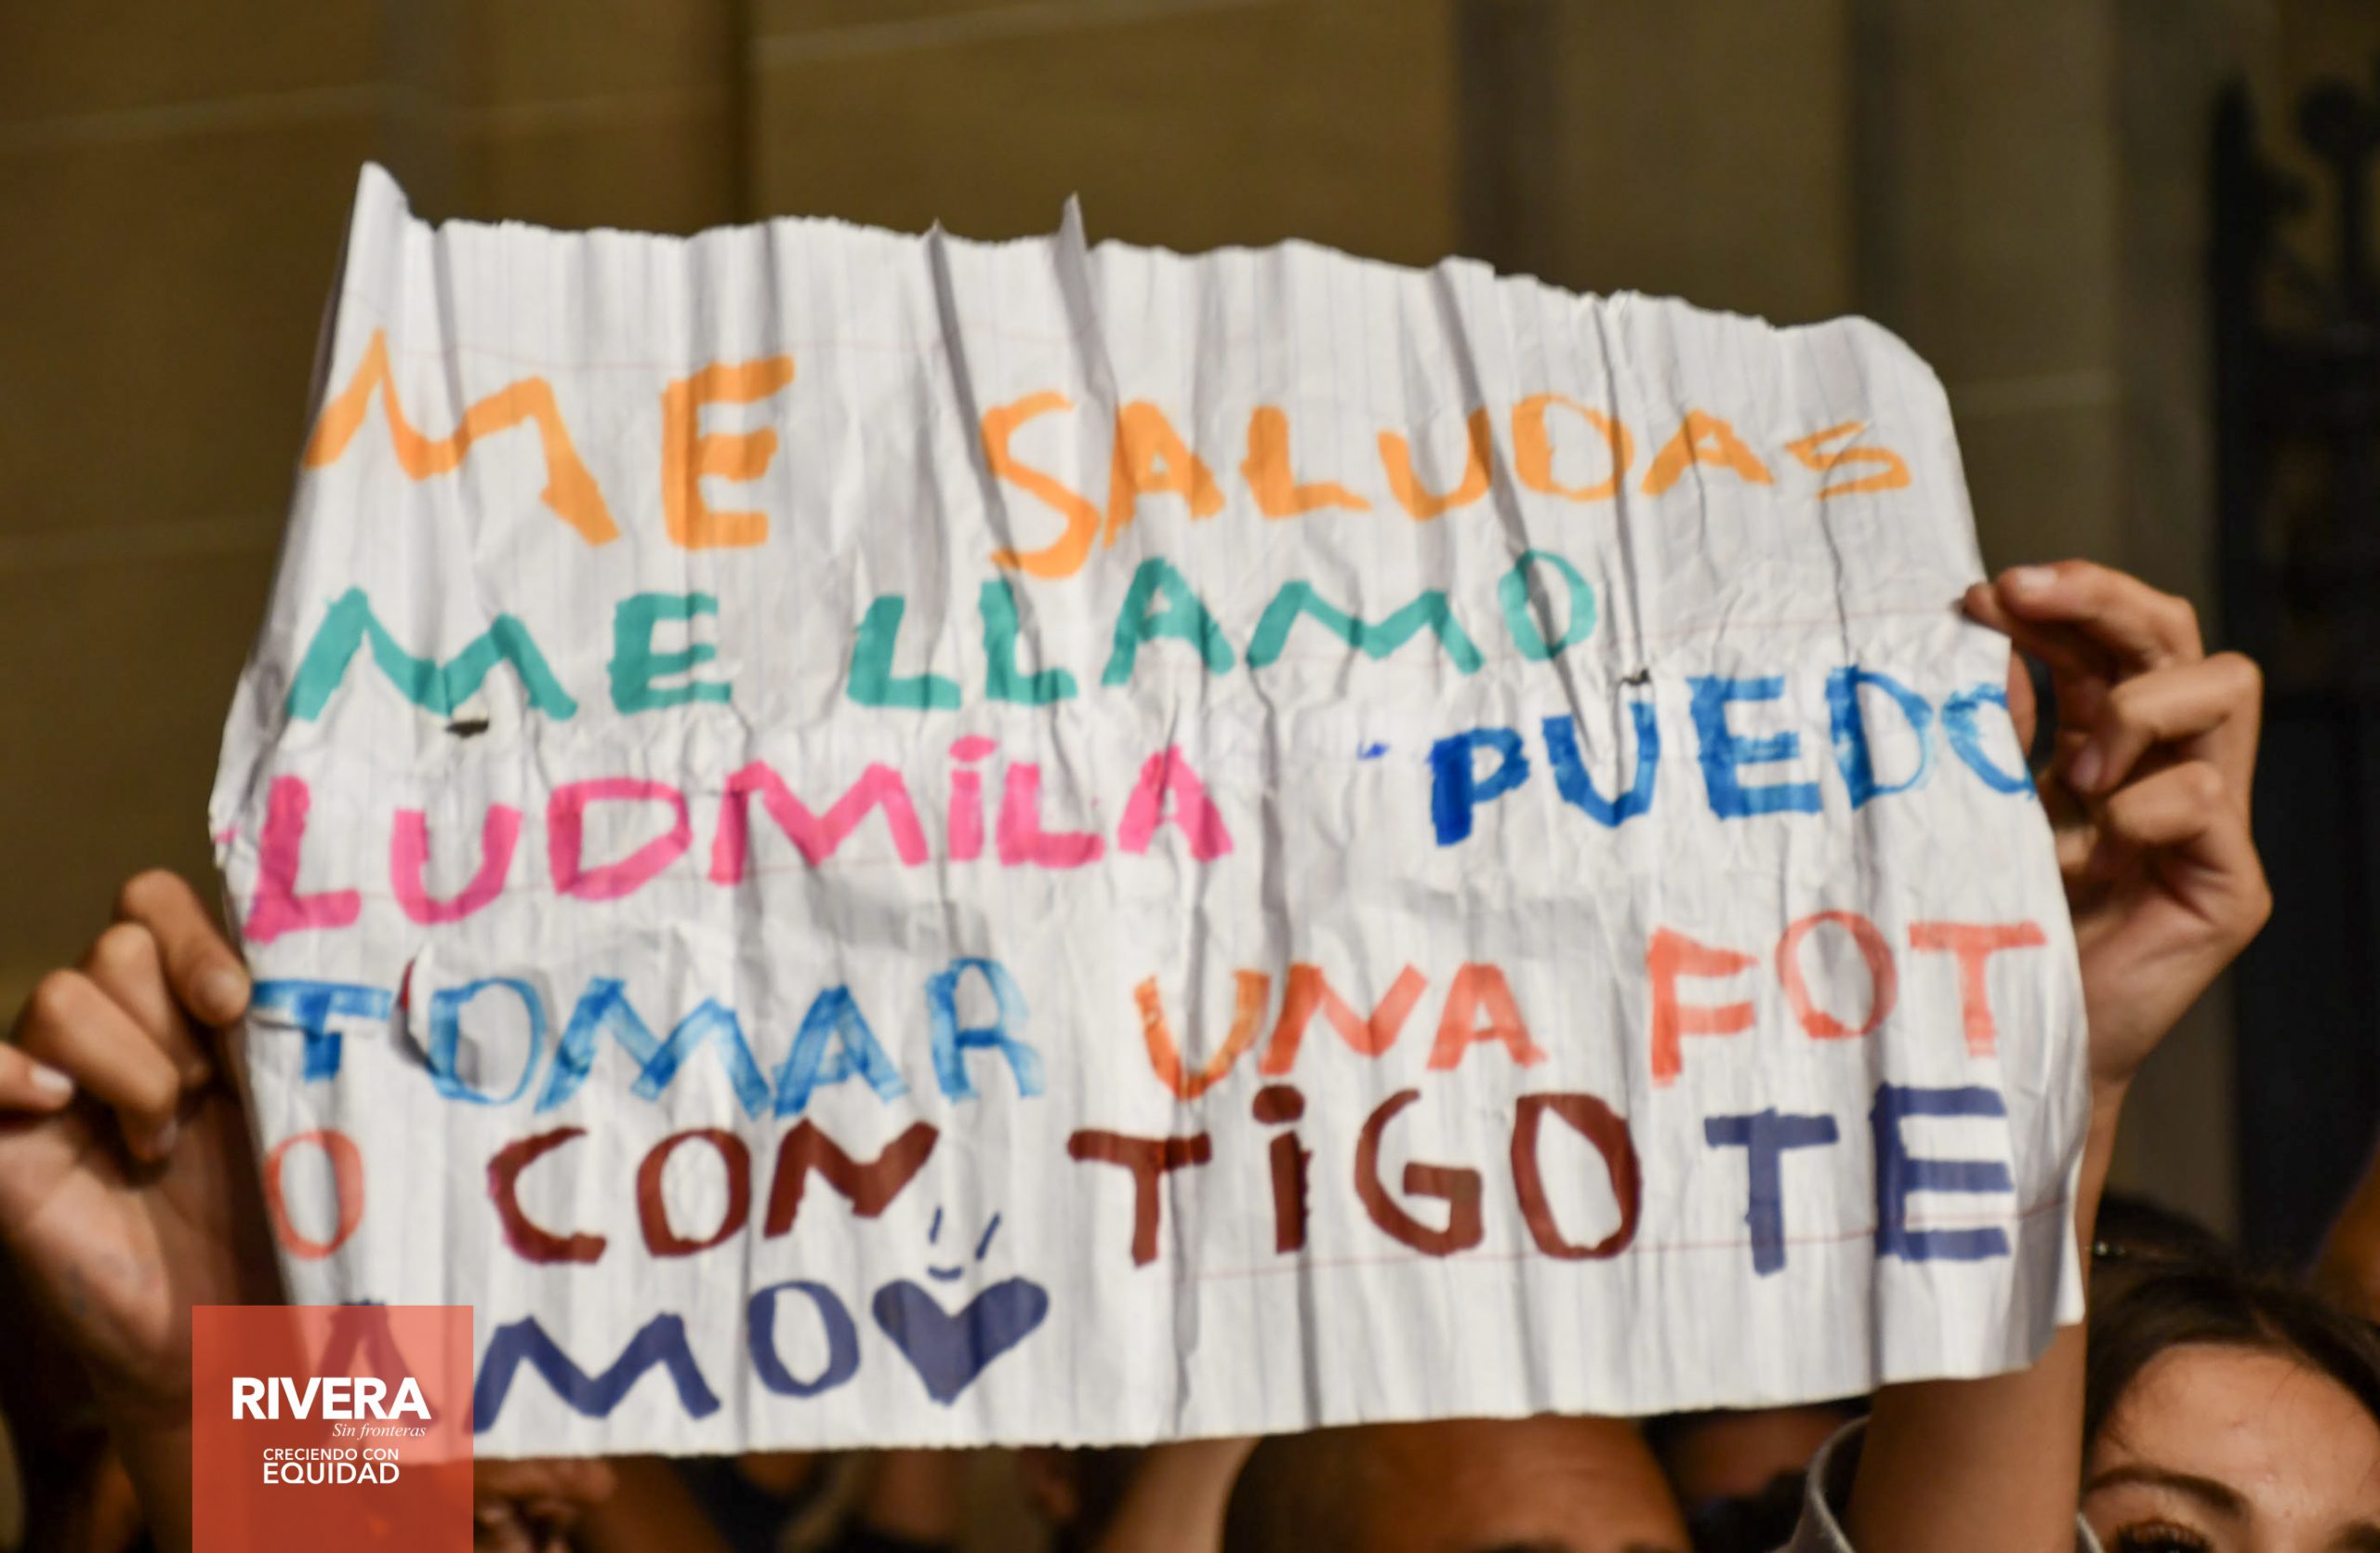 ME SALUDAS
ME LLAMO
LUDMiLA PUEDO
TOMAR UNA FOT
O CON TiGO TE
AMO
RIVERA
Sin fronteras
CRECIENDO CON
EQUIDAD